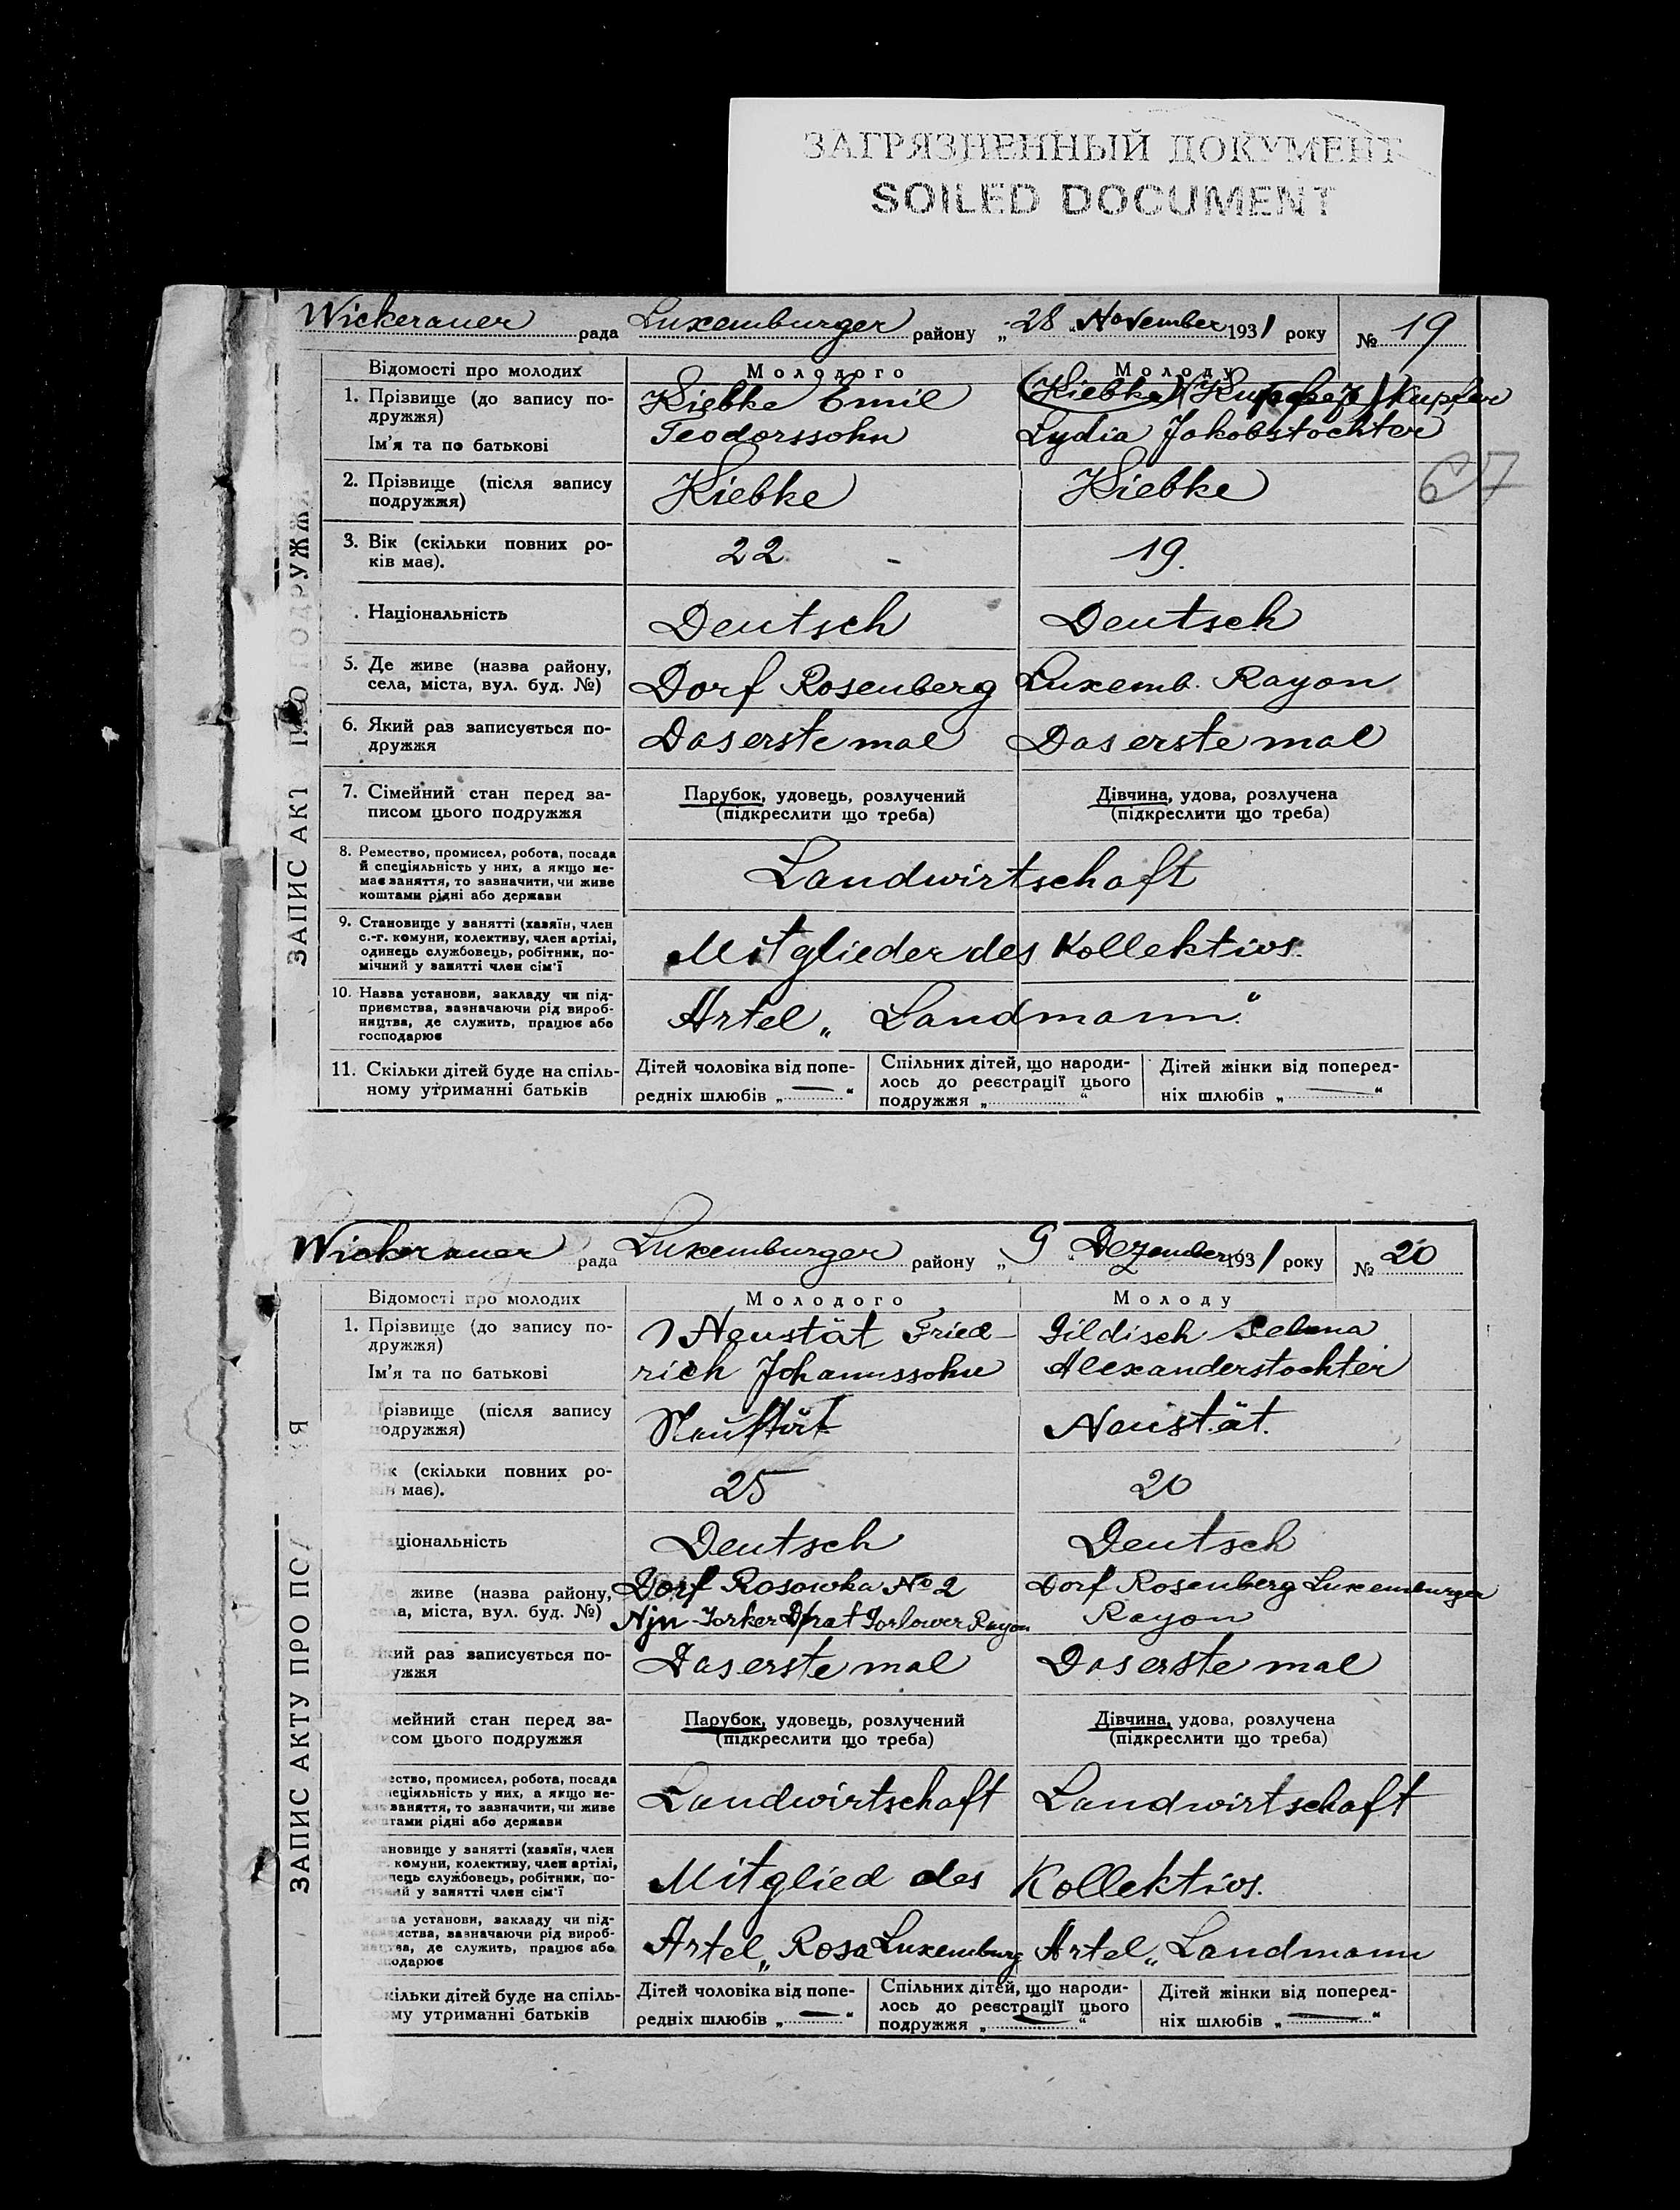 ЗАГРЯЗНЕННЫЙ ДОКУМЕНТ
SOILED DOCUMENT
Wickerauer рада Luxemburger району „28 „ November 1931 року № 19
ЗАПИС АКТ ПРО ПОДРУЖЖЯ
Відомості про молодих Молодого Молоду
1. Прізвище (до запису по-
дружжя)
Ім'я та по батькові
Kiebke Emil
Teodorssohn
(Kiebke) Kupfer
Lydia Jakobstochter
2. Прізвище (після запису
подружжя)
Kiebke Kiebke
67
3. Вік (скільки повних ро-
ків має).
22 - 19.
. Національність Deutsch Deutsch
5. Де живе (назва району,
села, міста, вул. буд. №)
Dorf Rosenberg Luxemb. Rayon
6. Який раз записується по-
дружжя
Das erste mal Das erste mal
7. Сімейний стан перед за-
писом цього подружжя
Парубок, удовець, розлучений
(підкреслити що треба)
Дівчина, удова, розлучена
(підкреслити що треба)
8. Ремество, промисел, робота, посада
й спеціяльність у них, а якщо не-
має заняття, то зазначити, чи живе
коштами рідні або держави
Landwirtschaft
9. Становище у занятті (хазяїн, член
с.-г. комуни, колективу, член артілі,
одинець службовець, робітник, по-
мічний у занятті член сім'ї
Mitglieder des Kollektivs.
10. Назва установи, закладу чи під-
приємства, зазначаючи рід вироб-
ництва, де служить, працює або
господарює
Artel „ Landmann."
11. Скільки дітей буде на спіль-
ному утриманні батьків
Дітей чоловіка від попе-
редніх шлюбів „ — "
Спільних дітей, що народи-
лось до реєстрації цього
подружжя „ "
Дітей жінки від поперед-
ніх шлюбів „ — "
Wickerauer рада Luxemburger району „9 " Dezember 1931 року № 20
ЗАПИС АКТУ ПРО ПО Я
Відомості про молодих Молодого Молоду
1. Прізвище (до запису по-
дружжя)
Ім'я та по батькові
Neustät Fried-
rich Johannssohn
Gildisch Selma
Alexanderstochter
2. Прізвище (після запису
подружжя)
Neustät Neustät.
Вік (скільки повних ро-
ків має).
25 20
Національність Deutsch Deutsch
Де живе (назва району,
села, міста, вул. буд. №)
Dorf Rosowka № 2
Njn-Jorker Gorlower Rayon
Dorf Rosenberg Luxemburger
Rayon
Який раз записується по-
дружжя
Das erste mal Das erste mal
Сімейний стан перед за-
писом цього подружжя
Парубок, удовець, розлучений
(підкреслити що треба)
Дівчина, удова, розлучена
(підкреслити що треба)
ество, промисел, робота, посада
спеціяльність у них, а якщо не-
має заняття, то зазначити, чи живе
коштами рідні або держави
Landwirtschaft Landwirtschaft
ановище у занятті (хазяїн, член
-г. комуни, колективу, член артілі,
одинець службовець, робітник, по-
мічний у занятті член сім'ї
Mitglied des Kollektivs.
Назва установи, закладу чи під-
приємства, зазначаючи рід вироб-
ництва, де служить, працює або
господарює
Artel „ Rosa Luxemburg Artel „ Landmann
Скільки дітей буде на спіль-
ному утриманні батьків
Дітей чоловіка від попе-
редніх шлюбів „ — "
Спільних дітей, що народи-
лось до реєстрації цього
подружжя „ — "
Дітей жінки від поперед-
ніх шлюбів „ — "